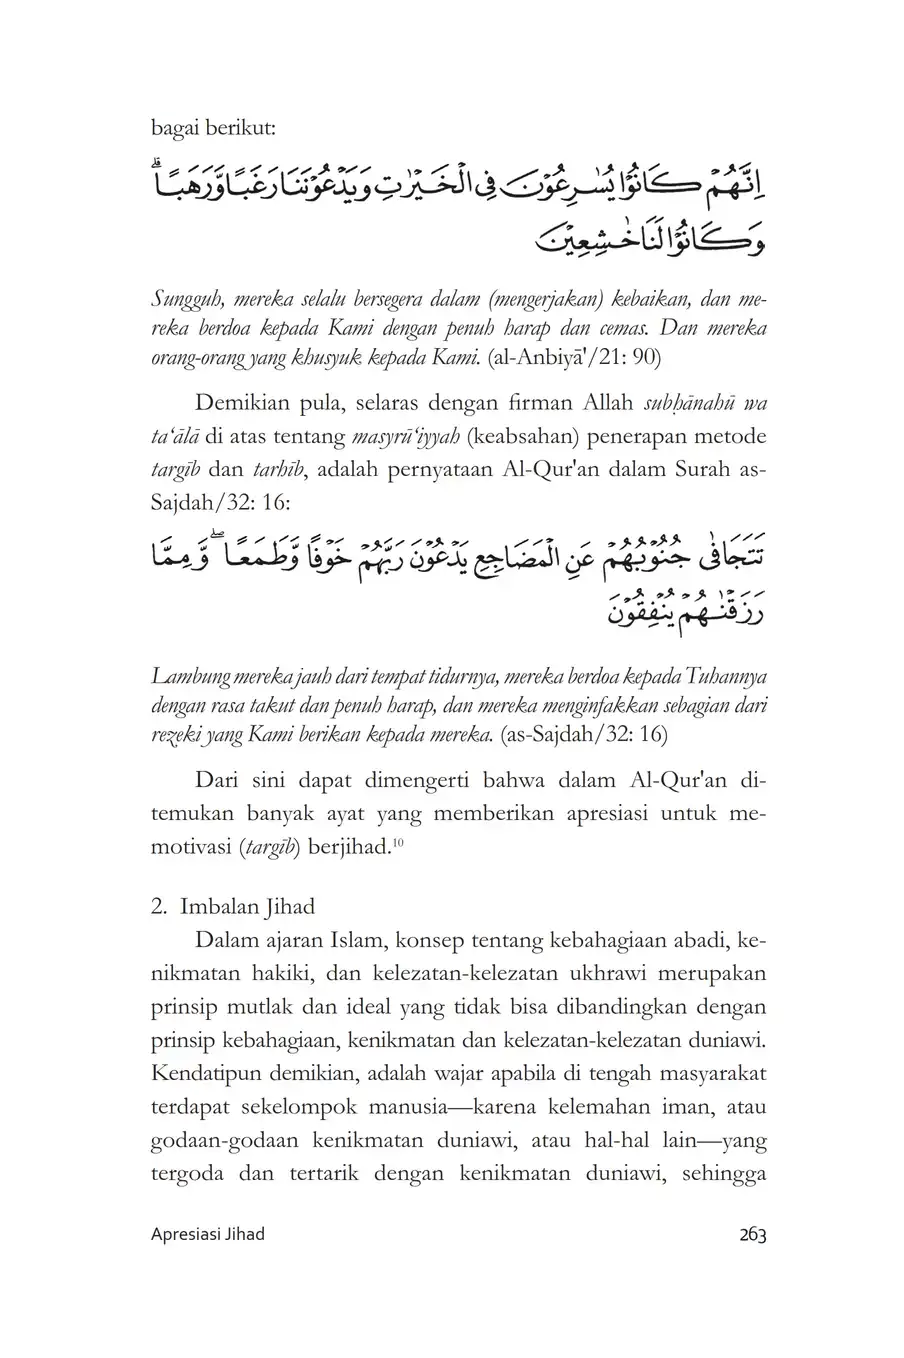 bagai berikut:
اِنَّهُمْ كَانُوْا يُسٰرِعُوْنَ فِى الْخَيْرٰتِ وَيَدْعُوْنَنَا رَغَبًا وَّرَهَبًاۗ
وَكَانُوْا لَنَا خٰشِعِيْنَ
Sungguh, mereka selalu bersegera dalam (mengerjakan) kebaikan, dan me-
reka berdoa kepada Kami dengan penuh harap dan cemas. Dan mereka
orang-orang yang khusyuk kepada Kami. (al-Anbiyā'/21: 90)
Demikian pula, selaras dengan firman Allah subḥānahū wa
ta‘ālā di atas tentang masyrū‘iyyah (keabsahan) penerapan metode
targīb dan tarhīb, adalah pernyataan Al-Qur'an dalam Surah as-
Sajdah/32: 16:
تَتَجَافٰى جُنُوْبُهُمْ عَنِ الْمَضَاجِعِ يَدْعُوْنَ رَبَّهُمْ خَوْفًا وَّطَمَعًاۖ وَّمِمَّا
رَزَقْنٰهُمْ يُنْفِقُوْنَ
Lambung mereka jauh dari tempat tidurnya, mereka berdoa kepada Tuhannya
dengan rasa takut dan penuh harap, dan mereka menginfakkan sebagian dari
rezeki yang Kami berikan kepada mereka. (as-Sajdah/32: 16)
Dari sini dapat dimengerti bahwa dalam Al-Qur'an di-
temukan banyak ayat yang memberikan apresiasi untuk me-
motivasi (targīb) berjihad.¹⁰
2. Imbalan Jihad
Dalam ajaran Islam, konsep tentang kebahagiaan abadi, ke-
nikmatan hakiki, dan kelezatan-kelezatan ukhrawi merupakan
prinsip mutlak dan ideal yang tidak bisa dibandingkan dengan
prinsip kebahagiaan, kenikmatan dan kelezatan-kelezatan duniawi.
Kendatipun demikian, adalah wajar apabila di tengah masyarakat
terdapat sekelompok manusia—karena kelemahan iman, atau
godaan-godaan kenikmatan duniawi, atau hal-hal lain—yang
tergoda dan tertarik dengan kenikmatan duniawi, sehingga
Apresiasi Jihad 263